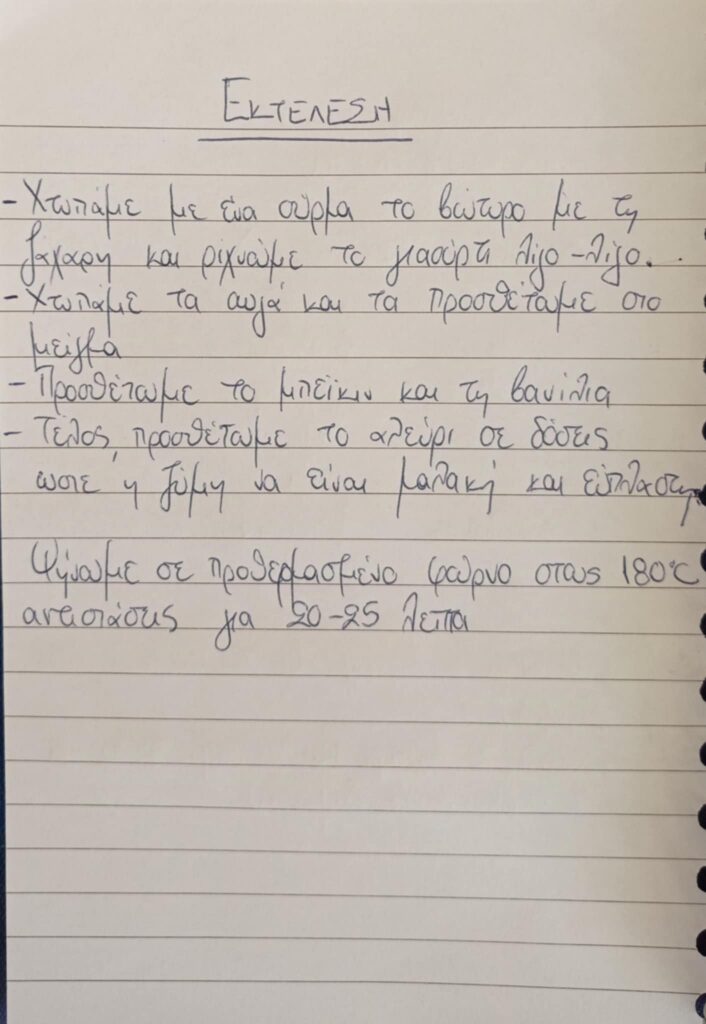 ΕΚΤΕΛΕΣΗ
- Χτυπάμε με ένα σύρμα το βούτυρο με τη
ζάχαρη και ρίχνουμε το γιαούρτι λίγο-λίγο.
- Χτυπάμε τα αυγά και τα προσθέτουμε στο
μείγμα
- Προσθέτουμε το μπέικιν και τη βανίλια
- Τέλος, προσθέτουμε το αλεύρι σε δόσεις
ώστε η ζύμη να είναι μαλακή και εύπλαστη.
Ψήνουμε σε προθερμασμένο φούρνο στους 180°C
αντιστάσεις για 20-25 λεπτά